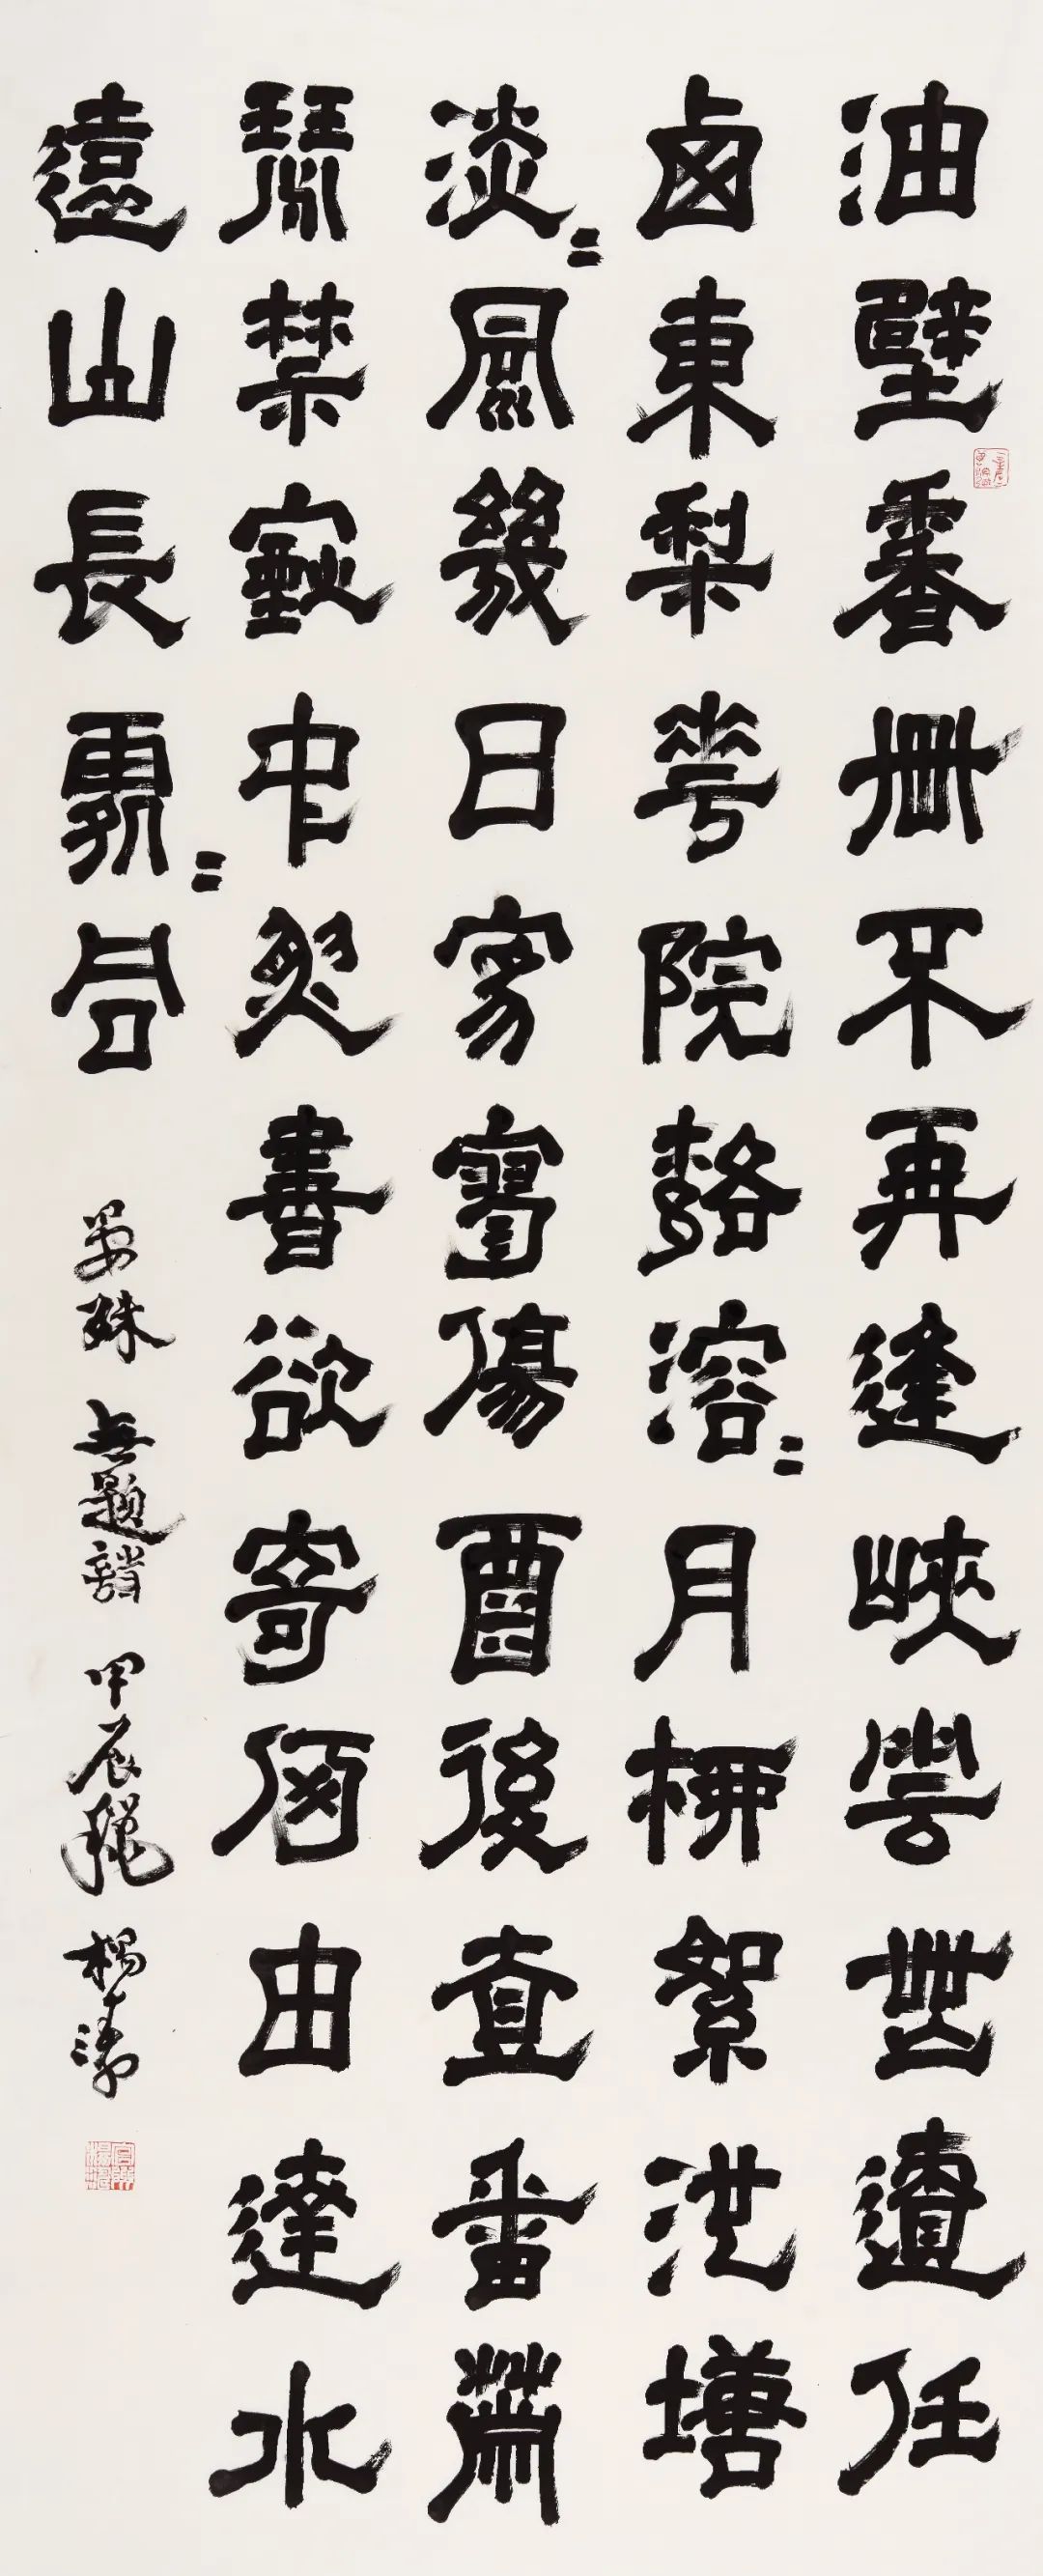 油壁香車不再逢峽雲無迹任
西東梨花院落溶〻月柳絮池塘
淡〻風幾日寂寥傷酒後壹番蕭
瑟禁煙中魚書欲寄何由達水
遠山長處〻同
晏殊 無題詩 甲辰穐 楊濤